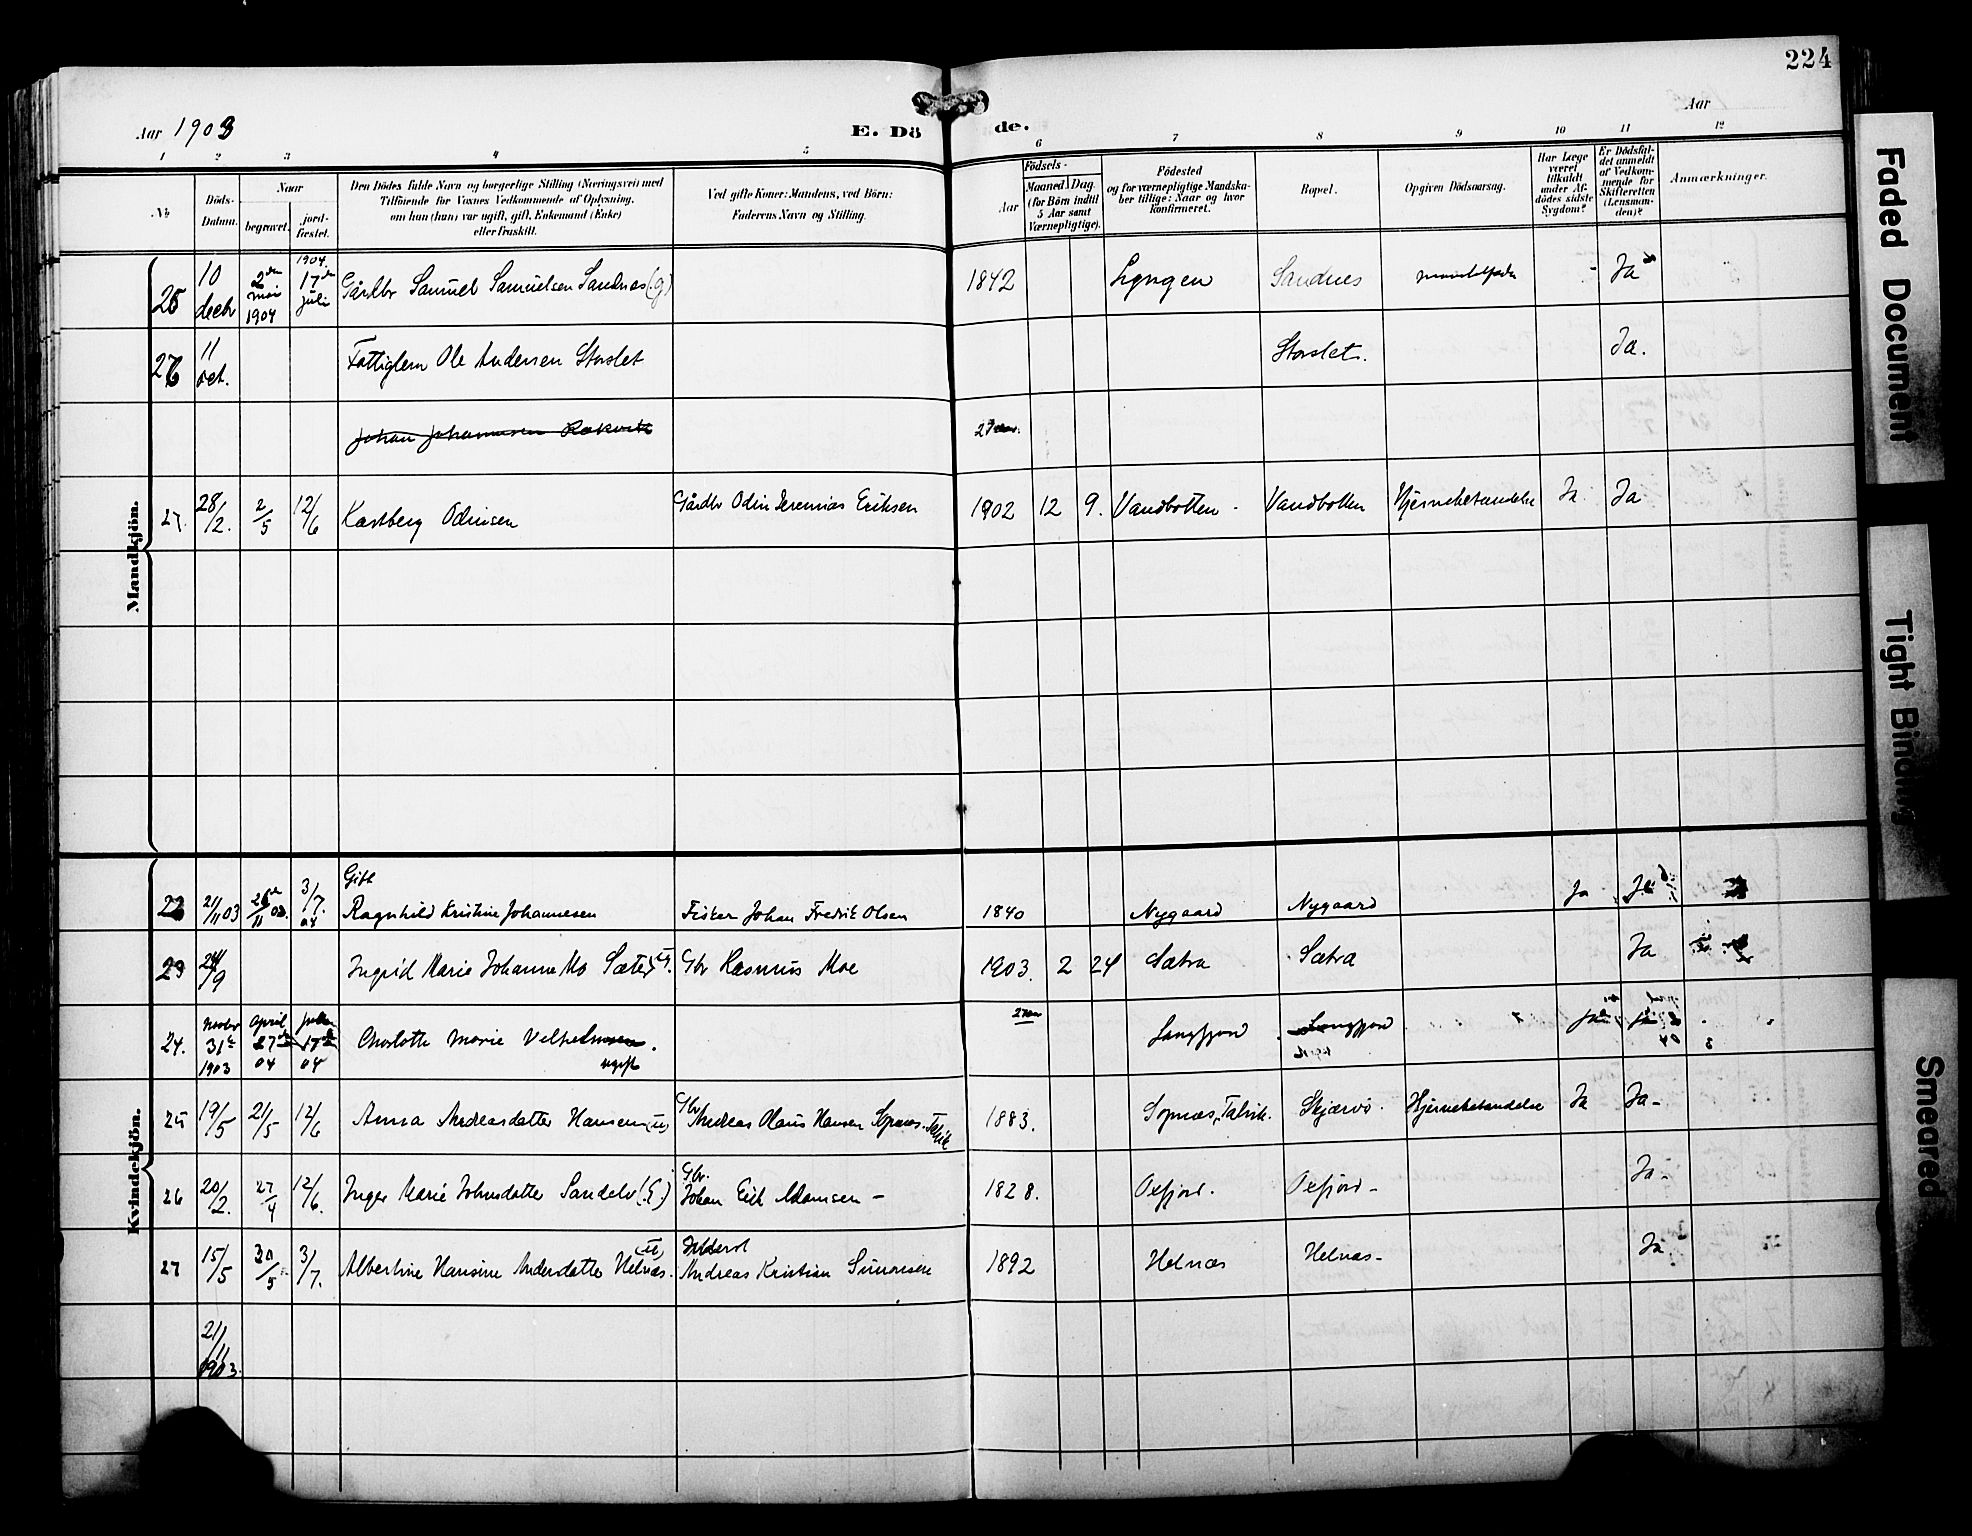 224
Aar 1903
E. Döde.
Aar
1 2 3 4 5 6 7 8 9 10 11 12
No.
Döds-Datum.
Naar
begravet.
jord-fæstet.
Den Dödes fulde Navn og borgerlige Stilling (Næringsvei) med
Tilföiende for Voxnes Vedkommende af Oplysning,
om han (hun) var ugift, gift, Enkemand (Enke)
eller fraskilt.
Ved gifte Koner: Mandens, ved Börn:
Faderens Navn og Stilling.
Födsels-
Aar
Maaned. Dag.
(for Börn indtil
5 Aar samt
Værnepligtige).
Födested
og for værnepligtige Mandska-
ber tillige: Naar og hvor
konfirmeret.
Bopæl.
Opgiven Dödsaarsag.
Har Læge
været
tilkaldt
under Af-
dödes sidste
Sygdom?
Er Dödsfal-
det anmeldt
af Vedkom-
mende for
Skifteretten
(Lensman-
den)?
Anmærkninger.
Mandkjön.
25 10 decbr 2den mai 1904 1904. 17de juli Gårdbr Samuel Samuelsen Sandnes (g) 1842 Lyngen Sandnes Ja
26 11 oct. Fattiglem Ole Andersen Storslet Storslet. Ja.
Johan Johannesen
27. 28/2. 2/5 12/6 Kastberg Odinsen Gårdbr Odin Jeremias Eriksen 1902 12 9. Vandbotten Vandbotten Hjernebetændelse Ja Ja
Kvindekjön.
22 21/11 03 3/7. 04 Gift
Ragnhild Kristine Johannesen Fisker Johan Fredrik Olsen 1840 Nygaard Nygaard Ja Ja
23 24/9 Ingrid Marie Johanne Mo Sætra Gbr Rasmus Moe 1903. 2 24 Sætra Sætra Ja
24. Novbr 31te 1903 April 27de 04 Julien 17de 04 Charlotte Marie
ugift
Langfjord Langfjord
25 19/5 21/5 12/6 Anna Andreasdatter Hansen (u) Gbr Andreas Olaus Hansen Sopnæs. Talvik 1883. Sopnæs, Talvik. Skjærvö. Hjernebetændelse Ja Ja
26 20/2. 27/4 12/6. Inger Marie Johnsdatter Sandelv (E.) Gbr.
Johan Erik Adamsen 1828. Oxfjord. Oxfjord Ja
27 15/5 30/5 3/7. Albertine Hansine Andersdatter Helnæs. (u)
Andreas Kristian Simonsen 1892 Helnæs Helnæs Ja
21/11 1903.
Faded Document
Tight Binding
Smeared